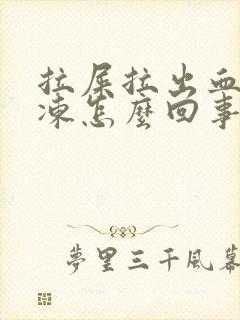 拉屎拉出血
凍怎麼回事
夢里三千風幕